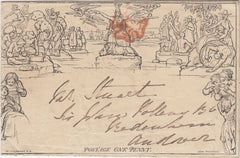 Stuart
Sir John Pollen
Redenham
Andover
POSTAGE ONE PENNY.